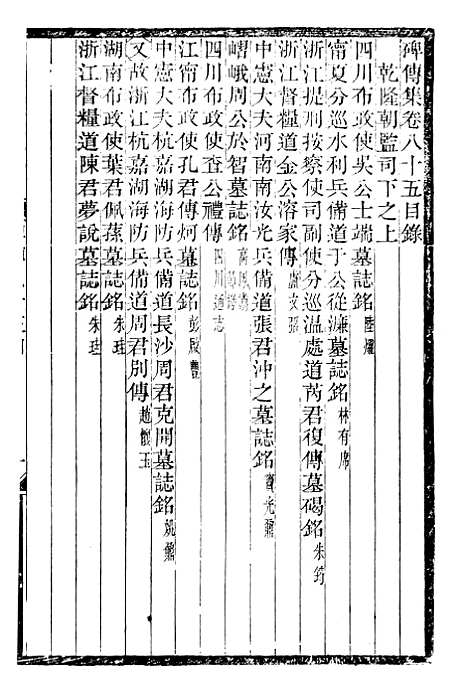 碑傳集卷八十五目錄
乾隆朝監司下之上
四川布政使吳公士端墓誌銘 陸燿
甯夏分巡水利兵備道于公從濂墓誌銘 林有席
浙江提刑按察使司副使分巡溫處道芮君復傳墓碣銘 朱筠
浙江督糧道金公溶家傳
中憲大夫河南南汝光兵備道張君沖之墓誌銘
嶍峨周公於智墓誌銘
四川布政使查公禮傳 四川通志
江甯布政使孔君傳炣墓誌銘 彭啟豐
中憲大夫杭嘉湖海防兵備道長沙周君克開墓誌銘 姚鼐
又故浙江杭嘉湖海防兵備道周君別傳 趙懷玉
湖南布政使葉君佩蓀墓誌銘 朱珪
浙江督糧道陳君夢說墓誌銘 朱珪